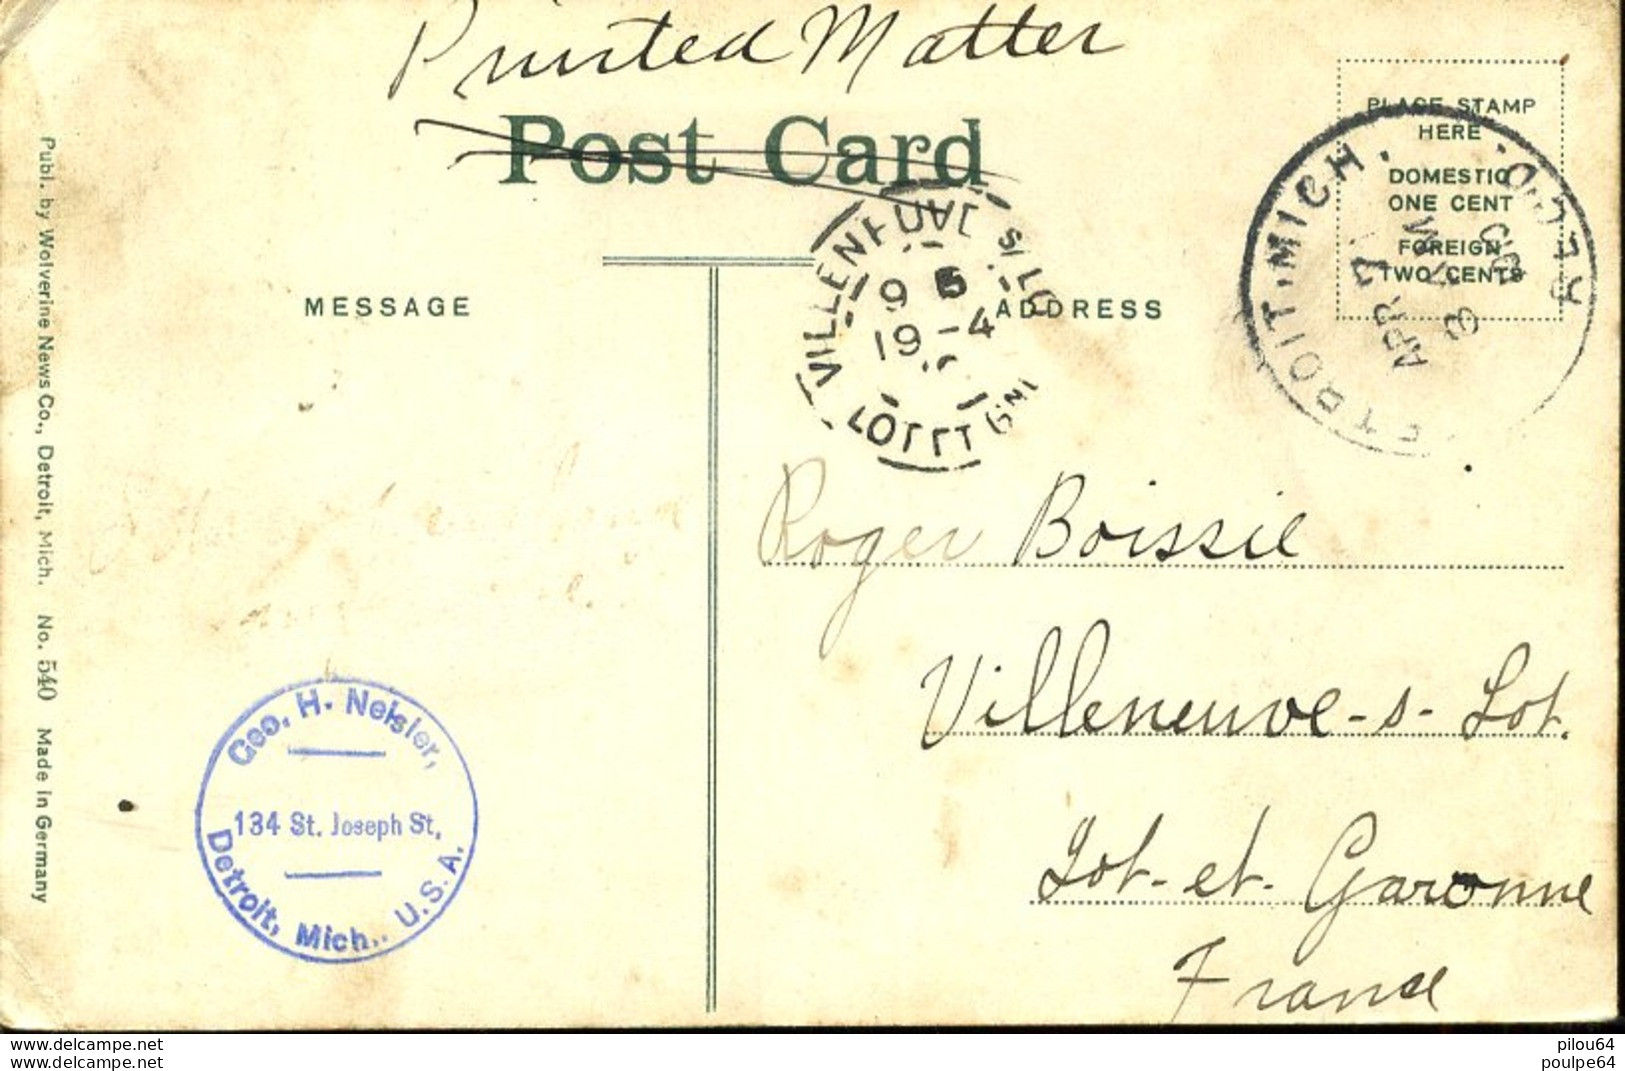 Printed Matter
Post Card
PLACE STAMP
HERE
DOMESTIC
ONE CENT
FOREIGN
TWO CENTS
DETROIT. MICH.
REC'D.
APR 7
3 PM
VILLENEUVE S/LOT
9 5
19 -4
LOT ET GNE
MESSAGE
ADDRESS
Roger Boissie
Villeneuve-s-Lot.
Lot-et-Garonne
France
Geo. H. Neisler,
134 St. Joseph St.,
Detroit, Mich., U.S.A.
Publ. by Wolverine News Co., Detroit, Mich. No. 540 Made in Germany
www.delcampe.net
www.delcampe.net
pilou64
poulpe64